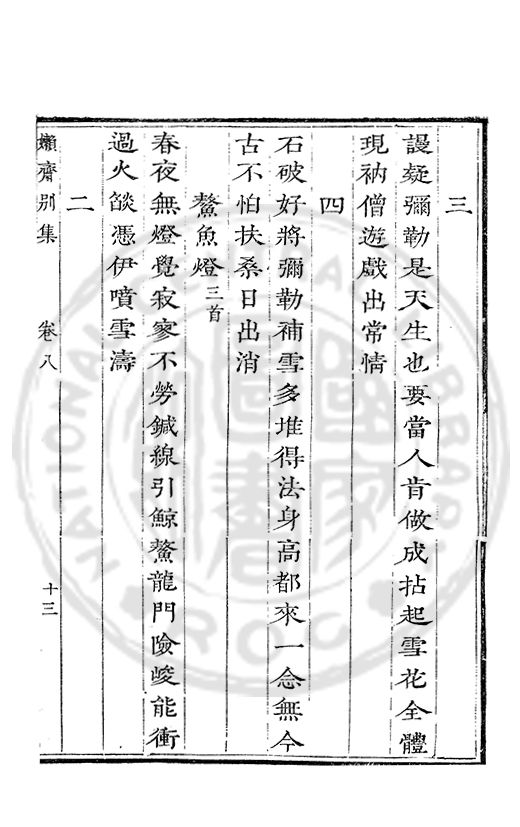 三
謾疑彌勒是天生也要當人肯做成拈起雪花全體
現衲僧遊戲出常情
四
石破好將彌勒補雪多堆得法身高都來一念無今
古不怕扶桑日出消
鰲魚燈三首
春夜無燈覺寂寥不勞鍼線引鯨鰲龍門險峻能衝
過火燄憑伊噴雪濤
二
嬾齋別集
卷八
十三
NATIONAL CENTRAL LIBRARY R.O.C.